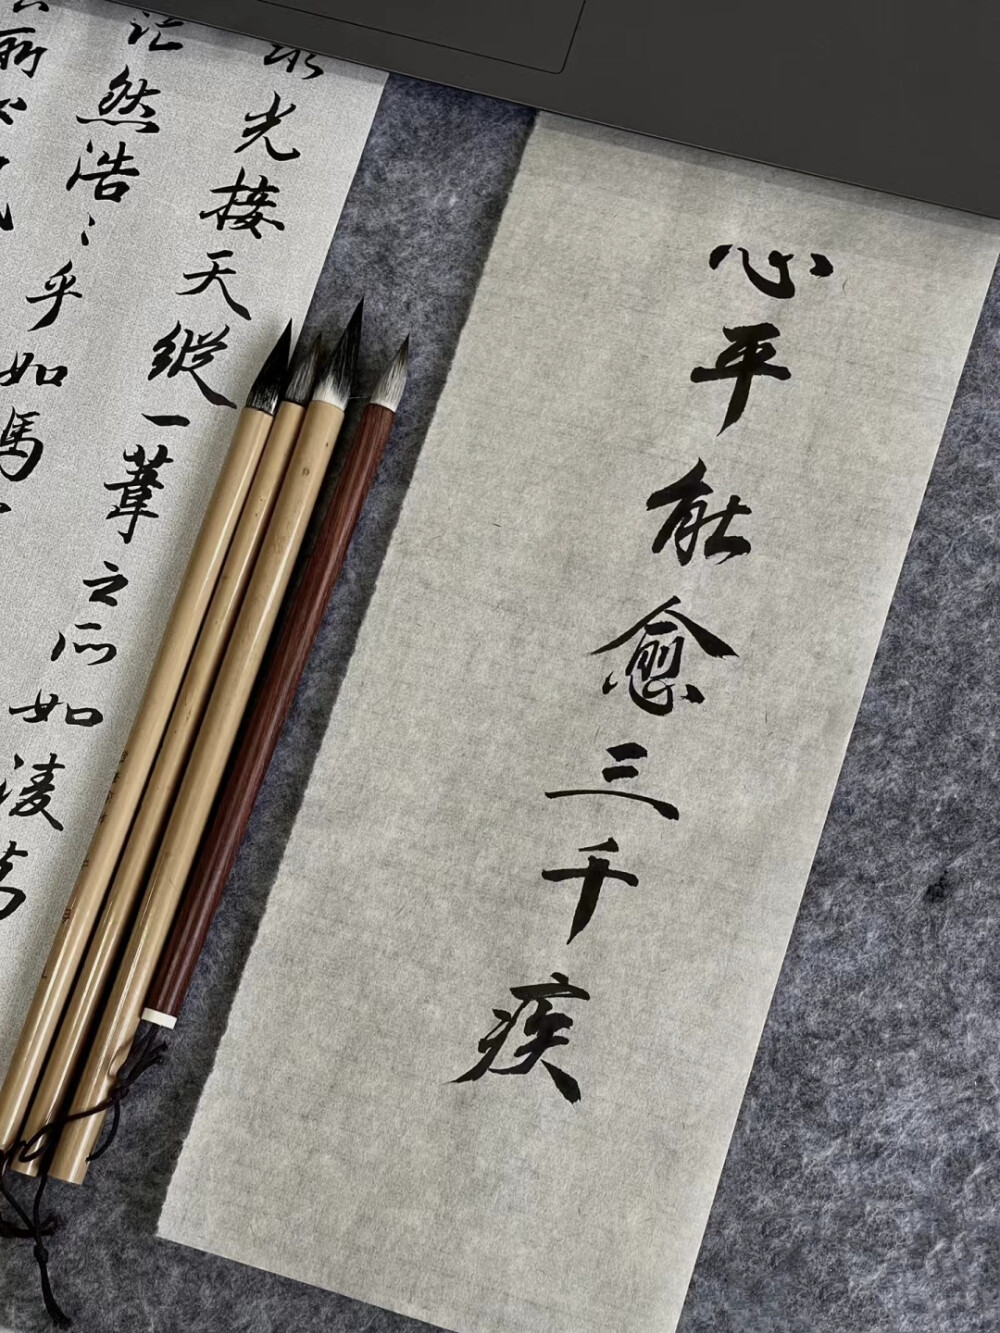 心平能愈三千疾
水光接天縱一葦之所如凌萬
茫然浩〻乎如馮